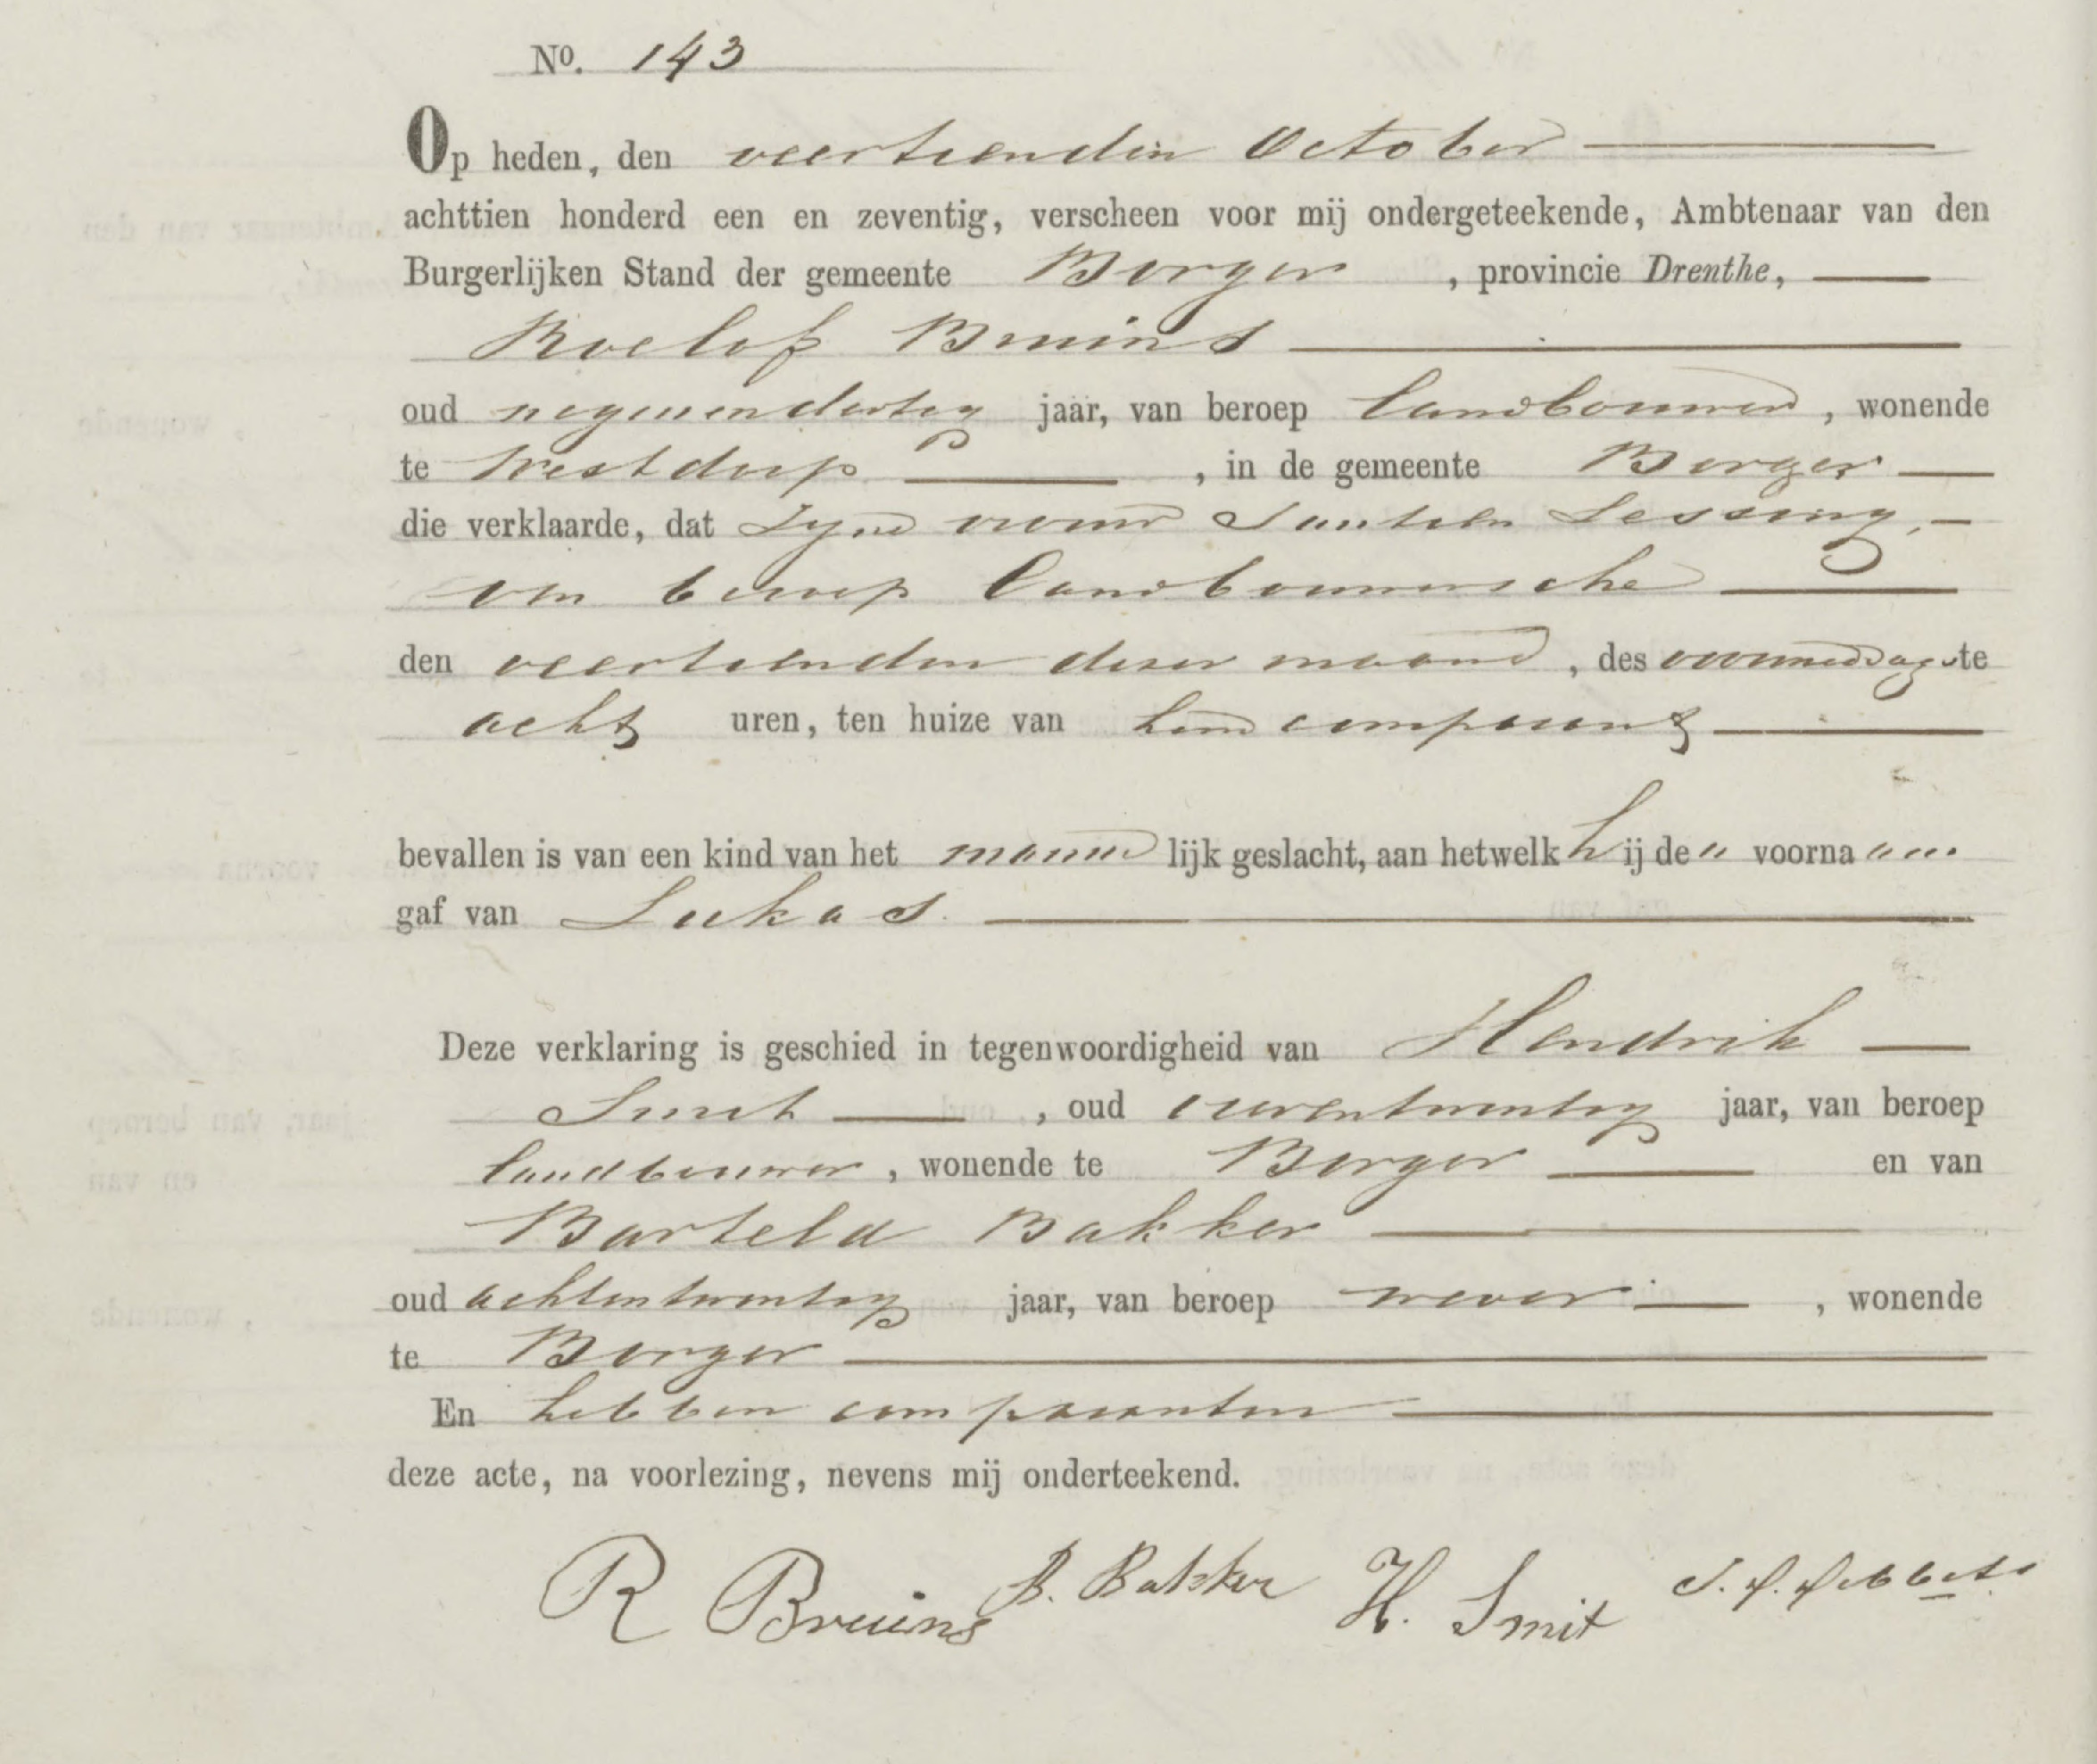 No. 143
Op heden, den veertienden October
achttien honderd een en zeventig, verscheen voor mij ondergeteekende, Ambtenaar van den
Burgerlijken Stand der gemeente Borger, provincie Drenthe,
Roelof Bruins
oud negenendertig jaar, van beroep landbouwer, wonende
te Westdorp, in de gemeente Borger
die verklaarde, dat zijne vrouw Jantien Lessing,
van beroep landbouwersche
den veertienden dezer maand, des voormiddags te
acht uren, ten huize van hem comparant
bevallen is van een kind van het mannelijk geslacht, aan hetwelk hij den voornaam
gaf van Lukas.
Deze verklaring is geschied in tegenwoordigheid van Hendrik
Smit, oud jaar, van beroep
landbouwer, wonende te Borger en van
Barteld Bakker
oud achtentwintig jaar, van beroep wever, wonende
te Borger
En hebben comparanten
deze acte, na voorlezing, nevens mij onderteekend.
R Bruins B. Bakker H. Smit